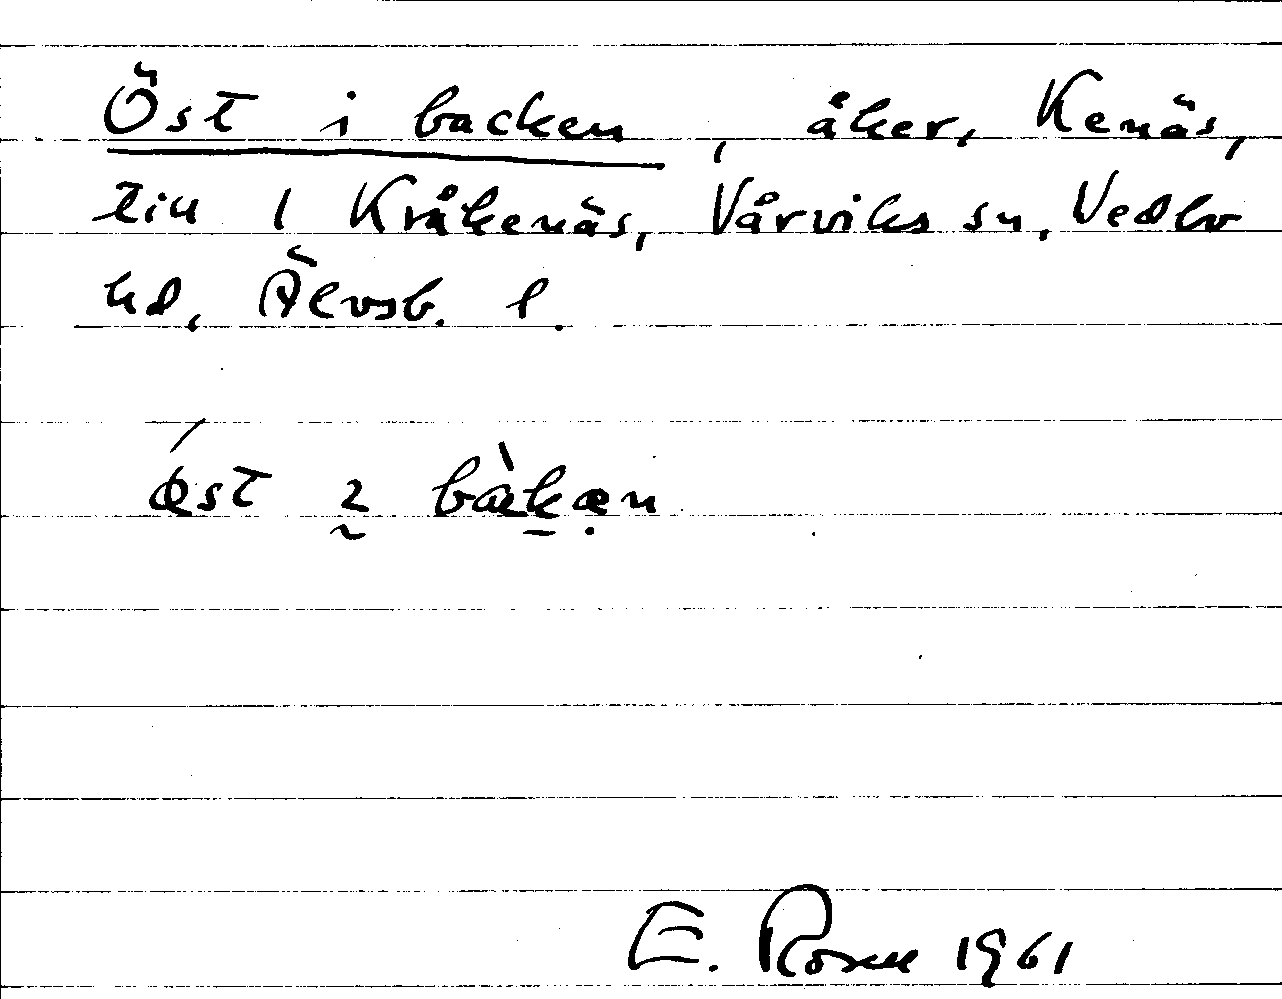 Öst i backen, åker, Kenäs,
till 1 Kråkenäs, Vårviks sn, Vedbo
hd, Älvsb. l.
œst ɩ bàkæn
E. Rosell 1961